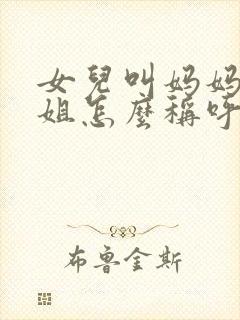 女兒叫妈妈
姐怎麼稱呼
布魯金斯